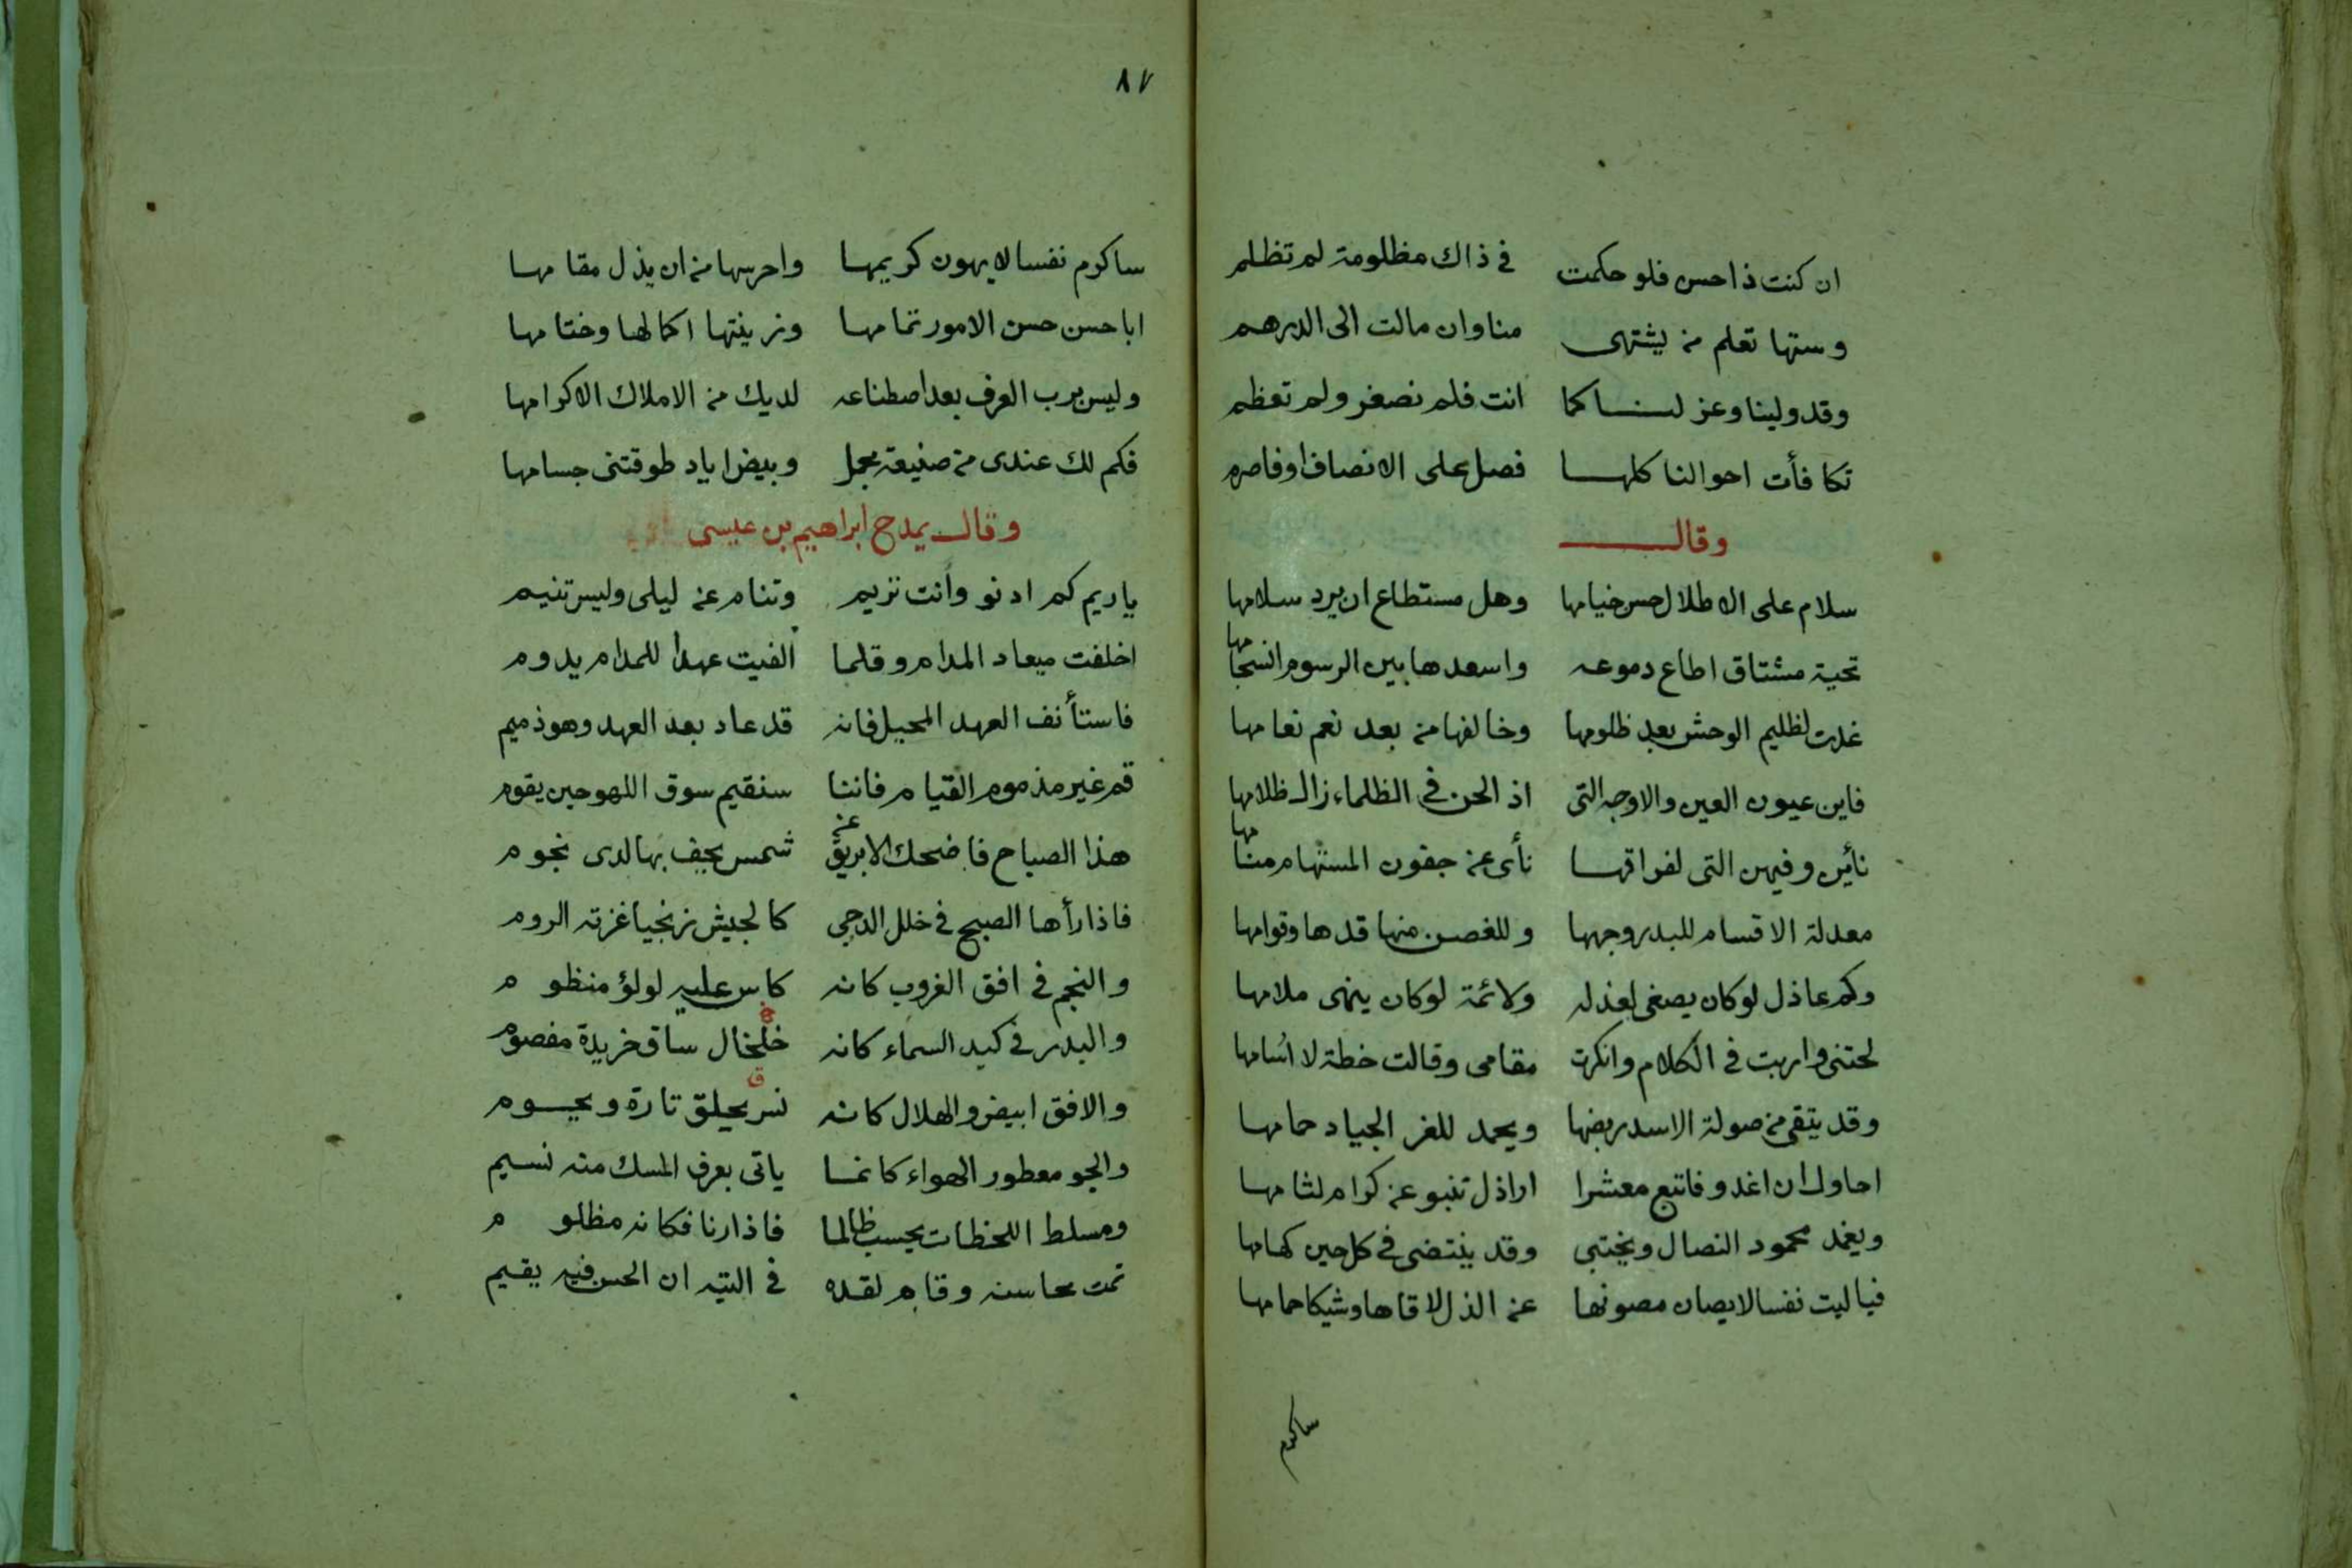 ان كنت ذا حس فلو حكمت في ذاك مظلومة لم تظلم
وستها تعلم من يشتهى منا وان مالت الى الدرهم
وقد ولينا وعز لنا كما انت فلم نصغر ولم تعظم
تكافأت احوالنا كلها فصل على الانصاف او فاصرم
وقال
سلام على الاطلال حس خيامها وهل مستطاع ان يرد سلامها
تحية مشتاق اطاع دموعه واسعدها بين الرسوم انسجامها
غدت لظليم الوحش بعد ظلومها وخالفها من بعد نعم نعامها
فاين عيون العين والاوجه التى اذ الحن في الظلماء زال ظلامها
نأين وفيهن التى لفراقها نأى عن جفون المستهام منامها
معدلة الاقسام للبدر وجهها وللغصن منها قدها وقوامها
وكم عاذل لو كان يصغى لعذله ولائمة لو كان ينهى ملامها
لحتنى واربت في الكلام وانكرت مقامى وقالت خطة لا اسامها
وقد يتقى من صولة الاسد ربضها ويحمد للغر الجياد حمامها
احاول ان اغدو فاتبع معشرا اراذل تنبو عن كرام لئامها
ويغمد محمود النصال ويختبى وقد ينتضى في كل حين كهامها
فيا ليت نفسا لا يصان مصونها عن الذل لاقاها وشيكا حمامها
ساكرم
٨٧
ساكرم نفسا لا يهون كريمها واحرسها من ان يذل مقامها
ابا حسن حسن الامور تمامها وزينتها اكمالها وختامها
وليس برب العرف بعد اصطناعه لديك من الاملاك الا كرامها
فكم لك عندى من صنيعة مجمل وبيض اياد طوقتنى جسامها
وقال يمدح ابراهيم بن عيسى
يا ريم كم ادنو وانت تريم وتنام عن ليلى وليس تنيم
اخلفت ميعاد المدام وقلما الفيت عهدا للمدام يدوم
فاستأنف العهد المحيل فانه قد عاد بعد العهد وهو ذميم
قم غير مذموم القيام فاننا سنقيم سوق اللهو حين يقوم
هذا الصباح فاضحك الابريق عن شمس يحف بها لدى نجوم
فاذا رأها الصبح في خلل الدجى كالجيش زنجيا غزته الروم
والنجم في افق الغروب كانه كاس عليه لولؤ منظوم
والبدر في كبد السماء كانه خلخال ساق خريدة مفصوم
والافق ابيض والهلال كانه نسر يحلق تارة ويحوم
والجو معطور الهواء كانما ياتى بعرف المسك منه نسيم
ومسلط اللحظات يحسب ظالما فاذا رنا فكانه مظلوم
تمت محاسنه وقام لقده في التيه ان الحسن فيه يقيم